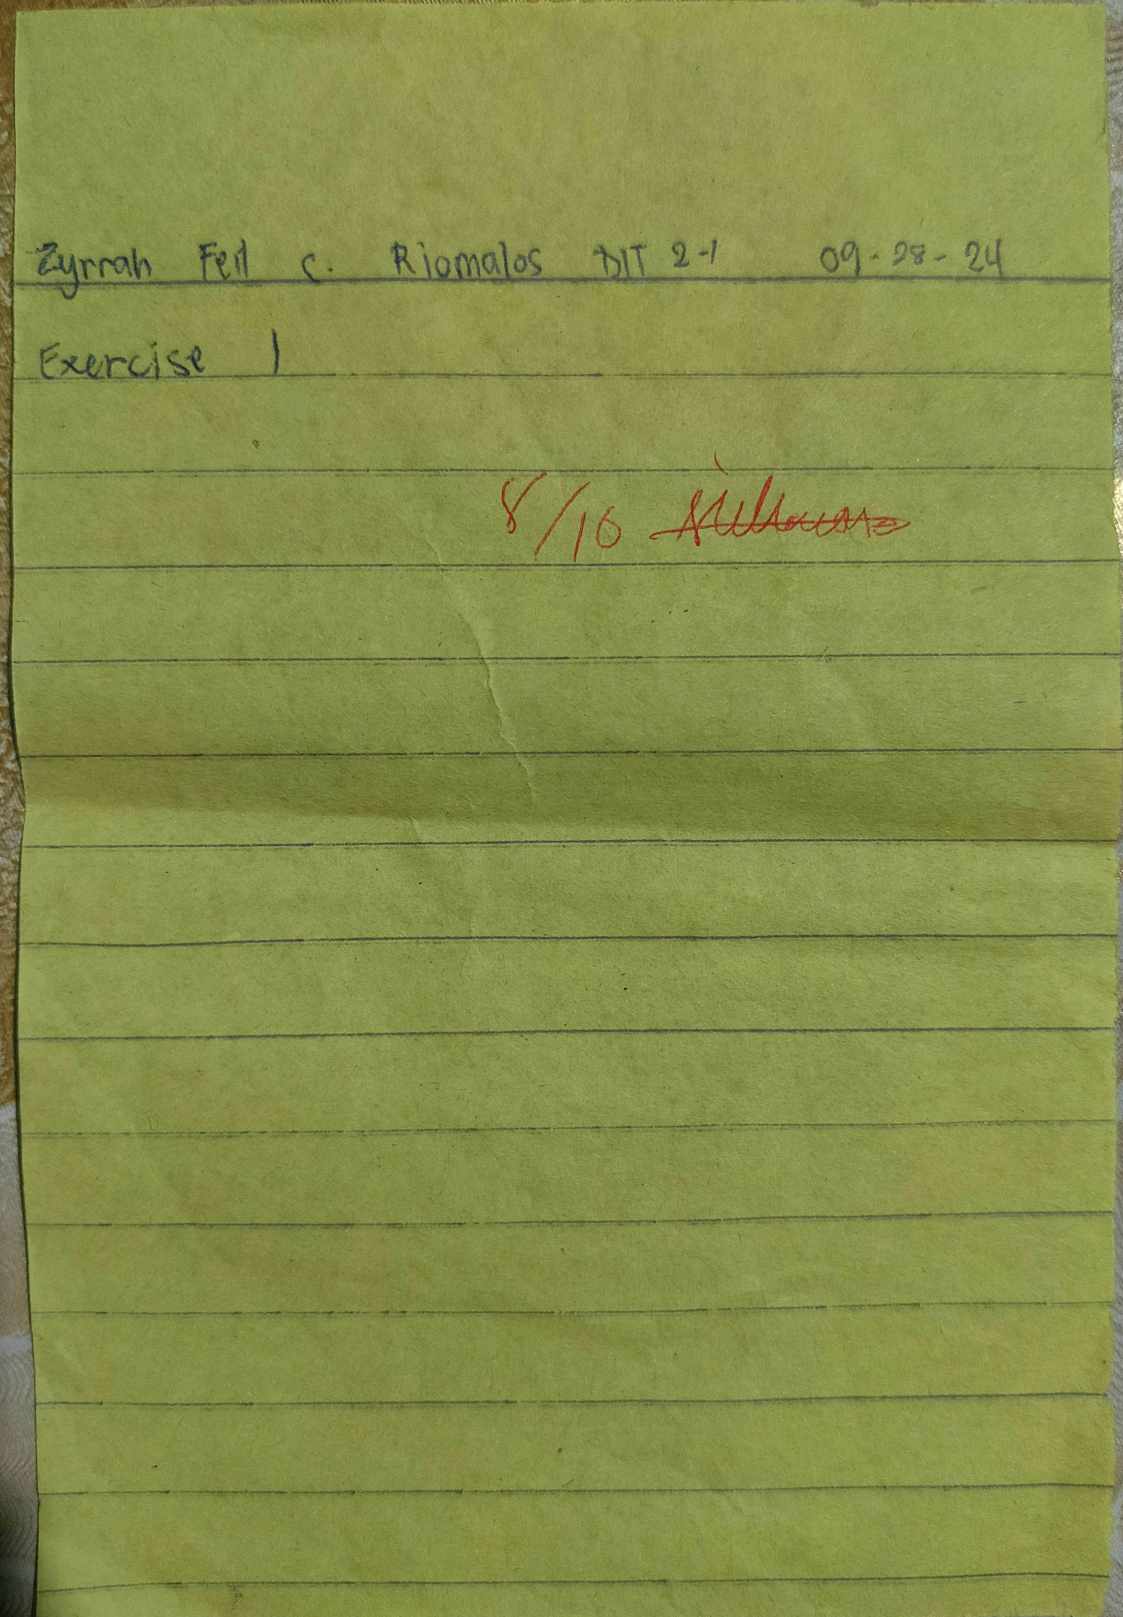 Zyrrah Feil C. Riomalos DIT 2-1 09-28-24
Exercise 1
8/10